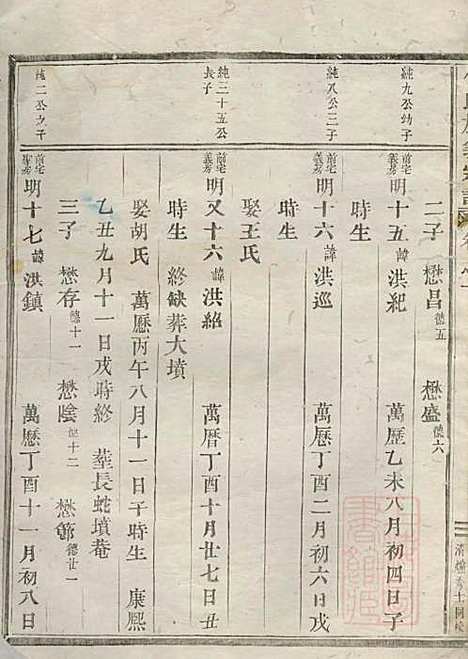 二子 懋昌德五 懋盛德六
純九公幼子
前宅義房 明十五諱洪紀 萬歷乙未八月初四日子
時生
純八公三子
前宅義房 明十六諱洪巡 萬歷丁酉二月初六日戌
時生
娶王氏
純三十五公長子
前宅義房 明又十六諱洪紹 萬曆丁酉十月廿七日丑
時生 終缺葬大墳
娶胡氏 萬歷丙午八月十一日子時生 康熙
乙丑九月十一日戌時終 葬長蛇墳菴
三子 懋存德十一 懋陰德十二 懋節德廿一
純二公之子
前宅 明十七諱洪鎮 萬歷丁酉十一月初八日